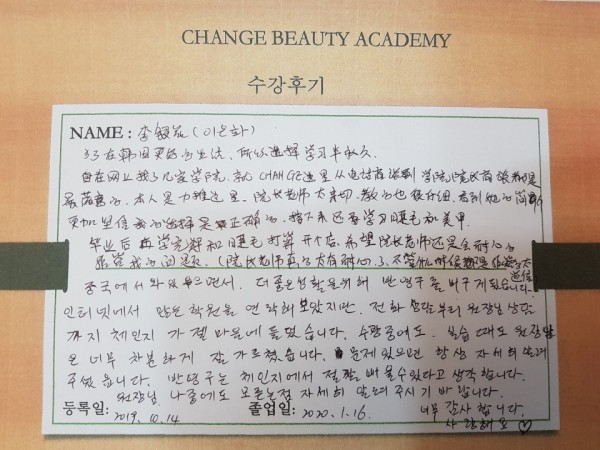 CHANGE BEAUTY ACADEMY
수강후기
NAME : 李银花 (이은화)
为了在韩国更好的生活、所以选择学习半永久.
自在网上找了几家学院、就CHANGE这里从电话 到学院院长 都是
最 的. 本人是力推这里. 院长老师太亲切、教的也很仔细. 看到她的简历
更加坚信我的选择是正确的. 接下来还要学习睫毛和美甲.
毕业后 再学完 和睫毛打算开个店. 希望院长老师还是会耐心的
我的问题. (院长老师真的太有耐心了、不管什么时候都是
중국에서 와 살면서. 더 좋은 생활을 위해 반영구를 배우게 되었습니다.
인터넷에서 많은 학원을 연락해 보았지만. 전화 상담부터 원장님 상담
까지 체인지가 젤 마음에 들었습니다. 수강중에도. 실습 때도 원장님
은 너무 차분하게 잘 가르쳤습니다. 문제 있으면 항상 자세히 알려
주셨습니다. 반영구는 체인지에서 절 배울수있다고 생각합니다.
원장님 나중에도 모르는점 자세히 알려 주시기 바랍니다.
등록일: 2019. 10. 14 졸업일: 2020. 1. 16. 너무 감사합니다.
사랑해요 ♡